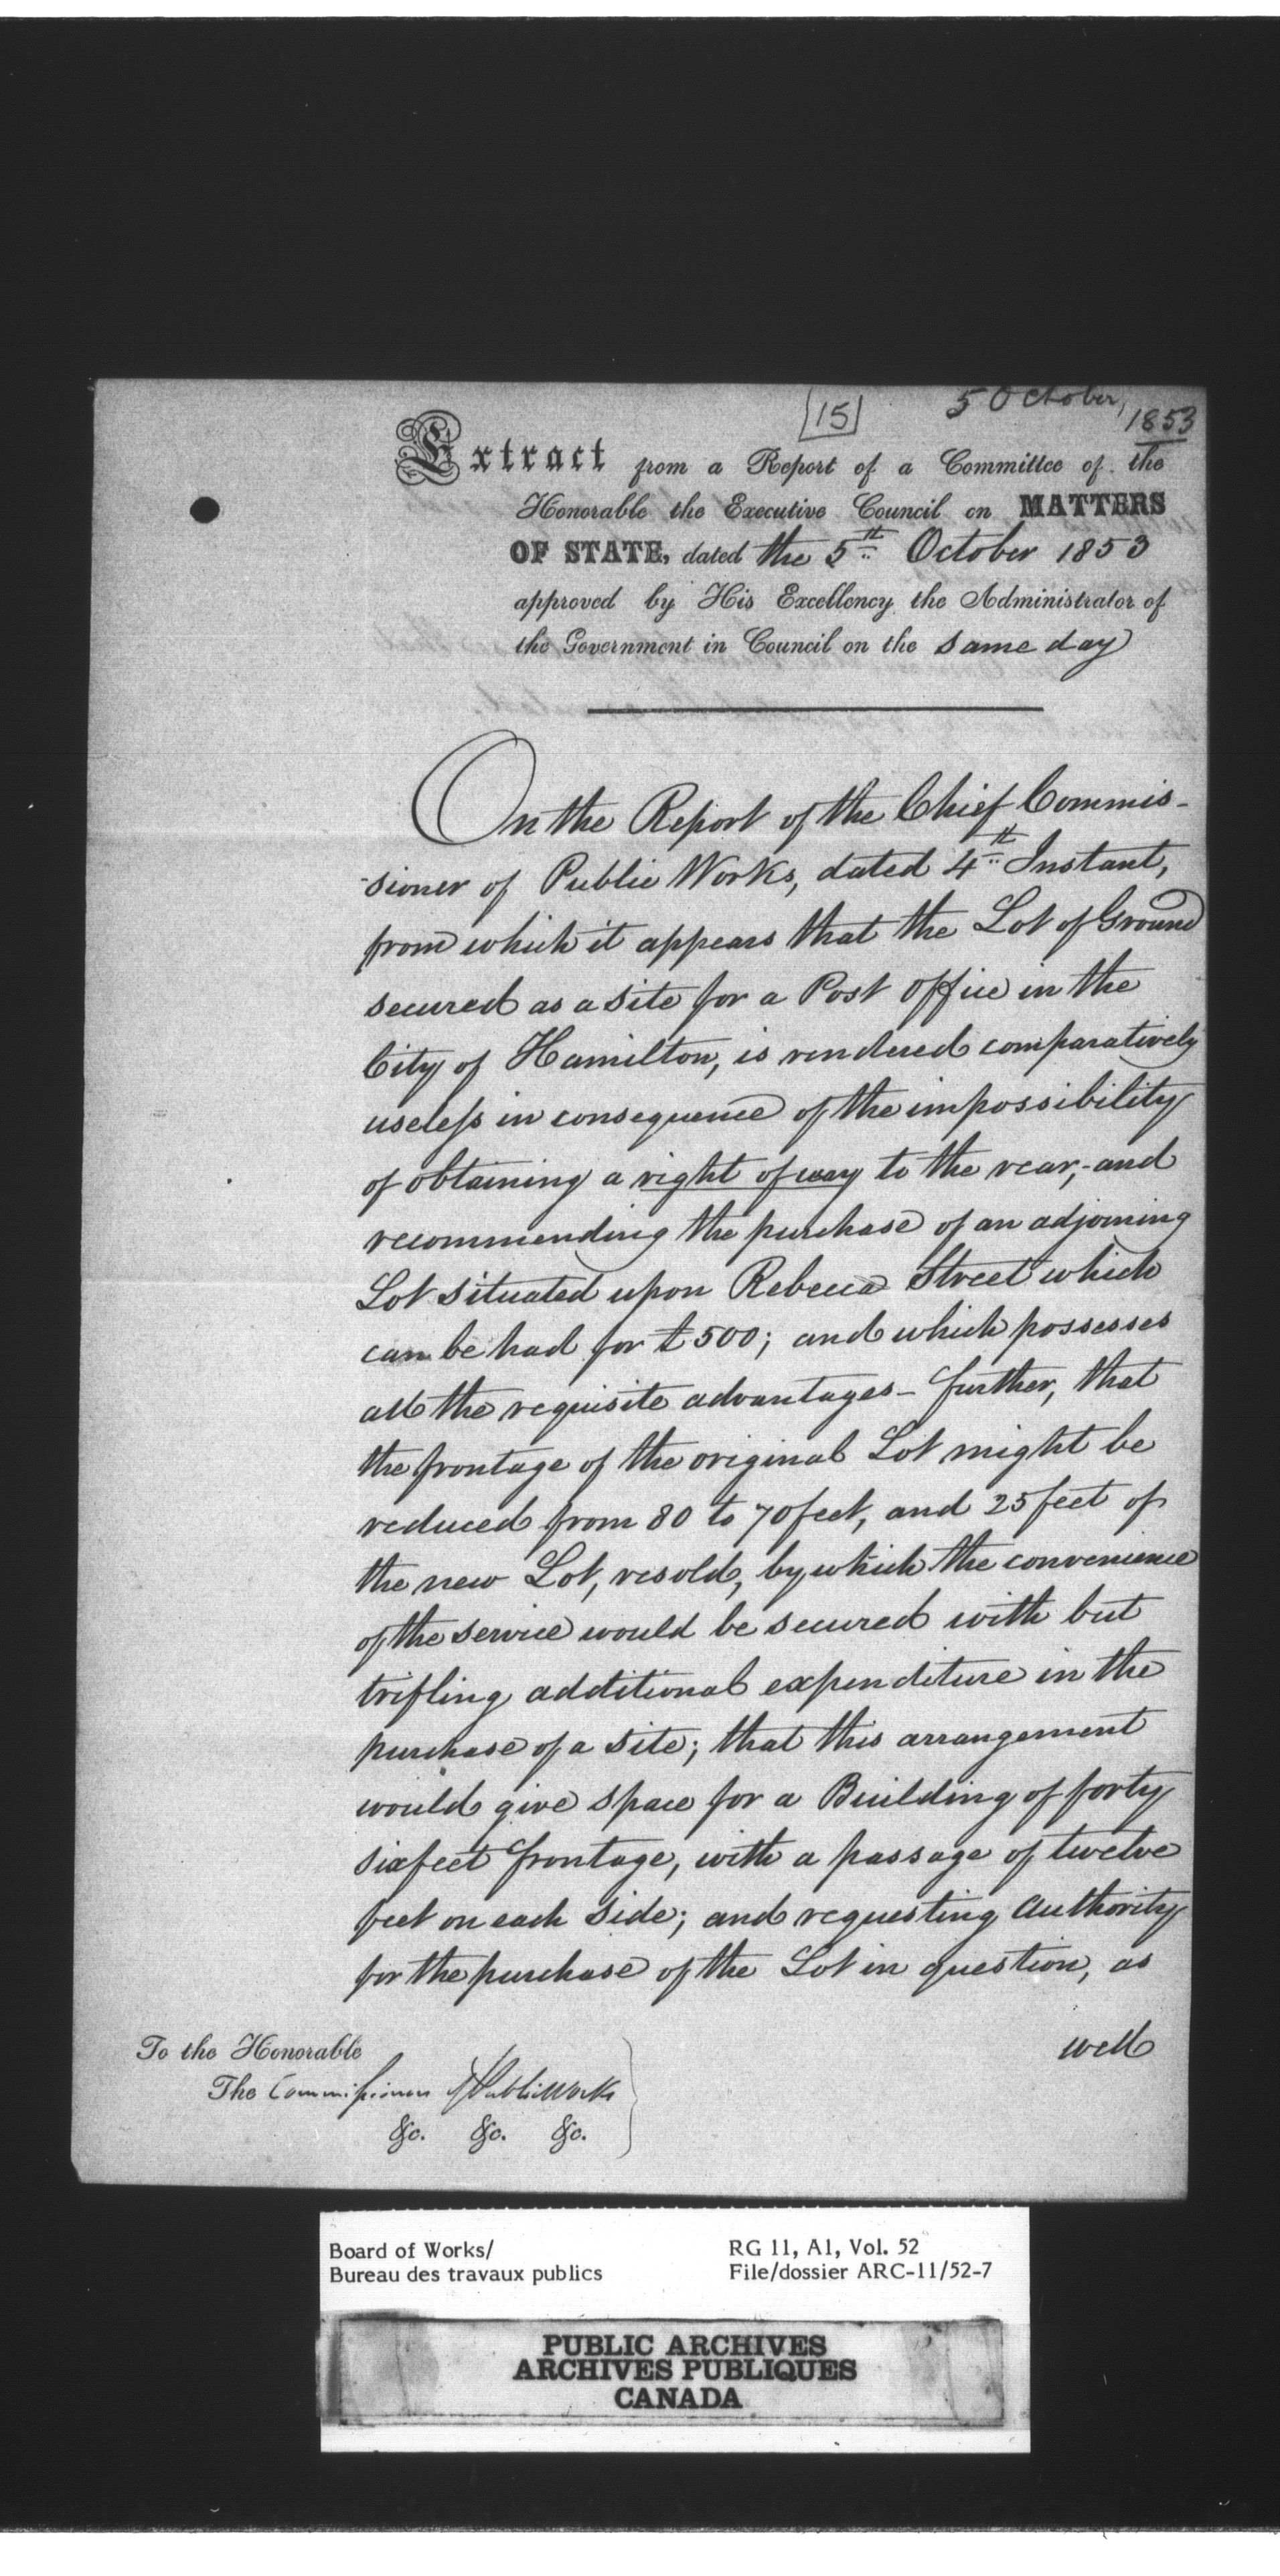 15
5 October,
1853
Extract from a Report of a Committee of the
Honorable the Executive Council on MATTERS
OF STATE, dated the 5th October 1853
approved by His Excellency the Administrator of
the Government in Council on the same day
On the Report of the Chief Commis-
-sioner of Public Works, dated 4th Instant,
from which it appears that the Lot of Ground
secured as a site for a Post Office in the
City of Hamilton, is rendered comparatively
useless in consequence of the impossibility
of obtaining a right of way to the rear,- and
recommending the purchase of an adjoining
Lot situated upon Rebecca Street which
can be had for £500; and which possesses
all the requisite advantages - further, that
the frontage of the original Lot might be
reduced from 80 to 70 feet, and 25 feet of
the new Lot, resold, by which the convenience
of the service would be secured with but
trifling additional expenditure in the
purchase of a site; that this arrangement
would give space for a Building of forty
six feet frontage, with a passage of twelve
feet on each side; and requesting authority
for the purchase of the Lot in question, as
well
To the Honorable
The Commissioners of Public Works
&c. &c. &c.
Board of Works/
Bureau des travaux publics
RG 11, A1, Vol. 52
File/dossier ARC-11/52-7
PUBLIC ARCHIVES
ARCHIVES PUBLIQUES
CANADA